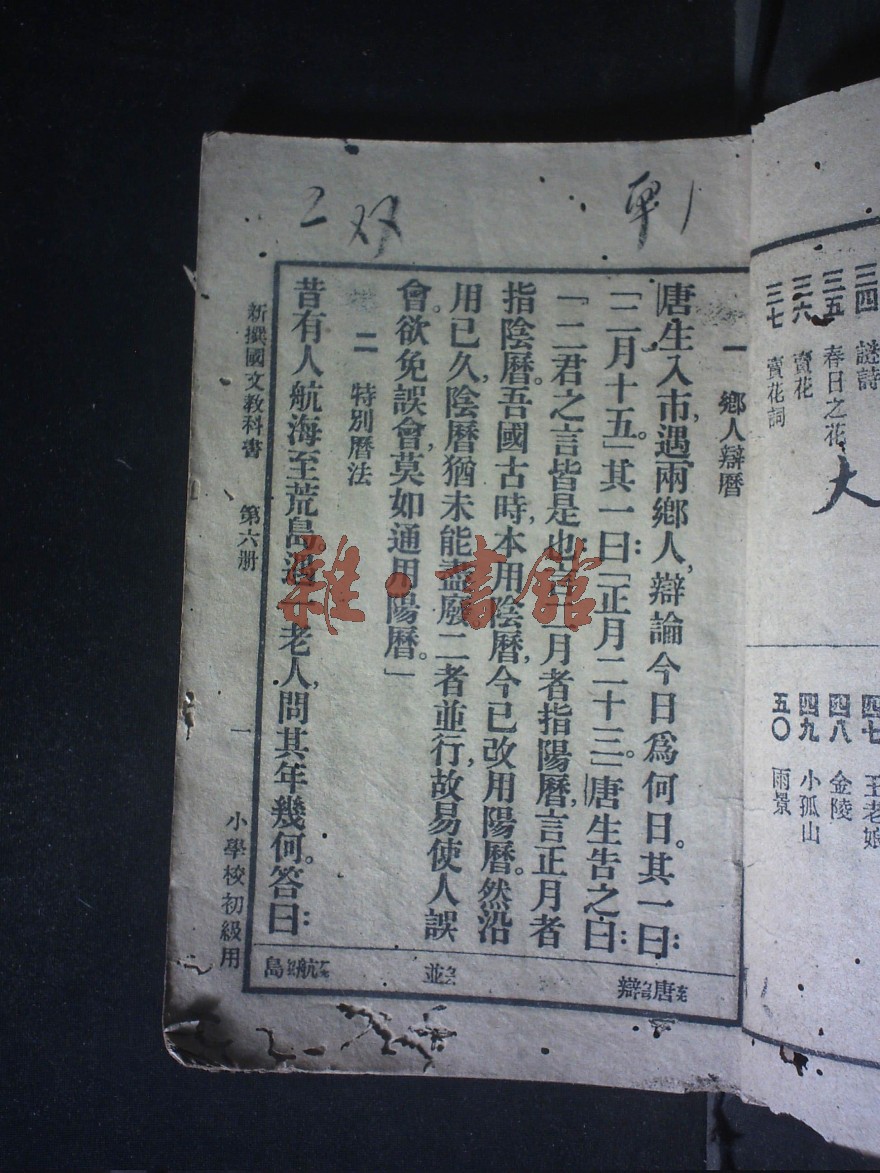 三四 謎詩
三五 春日之花
三六 賣花
三七 賣花詞
大
四七 王老娘
四八 金陵
四九 小孤山
五〇 雨景
一 鄉人辯曆
唐生入市,遇兩鄉人,辯論今日爲何日。其一曰:
「二月十五。」其一曰:「正月二十三。」唐生告之曰:
「二君之言皆是也。言二月者指陽曆,言正月者
指陰曆。吾國古時,本用陰曆,今已改用陽曆。然沿
用已久,陰曆猶未能盡廢。二者並行,故易使人誤
會。欲免誤會,莫如通用陽曆。」
二 特別曆法
昔有人航海至荒島,遇一老人,問其年幾何。答曰:
唐 辯
並
航 島
新撰國文教科書 第六册 一 小學校初級用
雜·書館